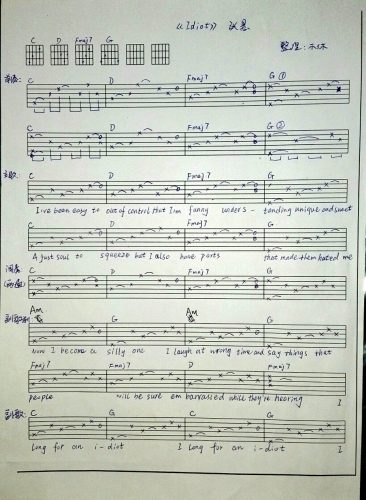 《Idiot》
C D Fmaj7 G
整理:
C D Fmaj7 G ①
C D Fmaj7 G ②
主歌: C D Fmaj7 G
I've been easy to out of control that I'm funny unders - tanding unique and sweet
C D Fmaj7 G
A just soul to squeeze but I also have parts that made them hated me
间奏: C D Fmaj7 G
Am G Am G
now I become a silly one I laugh at wrong time and say things that
Fmaj7 Fmaj7 D Fmaj7
people will be sure embarrassed while they're hearing I
副歌: C G C G
long for an i-diot I long for an i-diot I